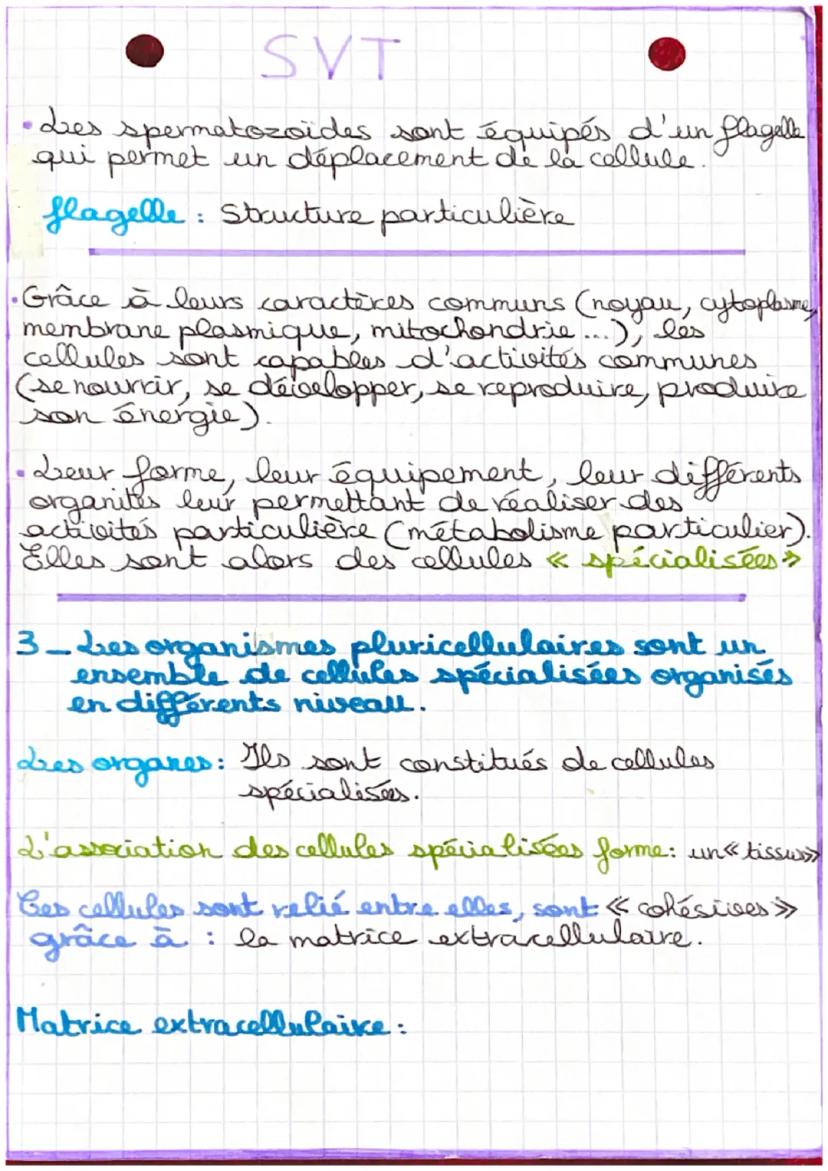 SVT
• Les spermatozoïdes sont équipés d'un flagelle
qui permet un déplacement de la cellule.
flagelle : Structure particulière
• Grâce à leurs caractères communs (noyau, cytoplasme,
membrane plasmique, mitochondrie ...), les
cellules sont capables d'activités communes
(se nourrir, se développer, se reproduire, produire
son énergie).
• Leur forme, leur équipement, leur différents
organites leur permettant de réaliser des
activités particulière (métabolisme particulier).
Elles sont alors des cellules « spécialisées »
3 _ Les organismes pluricellulaires sont un
ensemble de cellules spécialisées organisés
en différents niveau.
Les organes : Ils sont constitués de cellules
spécialisés.
L'association des cellules spécialisées forme : un « tissus »
Ces cellules sont relié entre elles, sont « cohésives »
grâce à : la matrice extracellulaire.
Matrice extracellulaire :